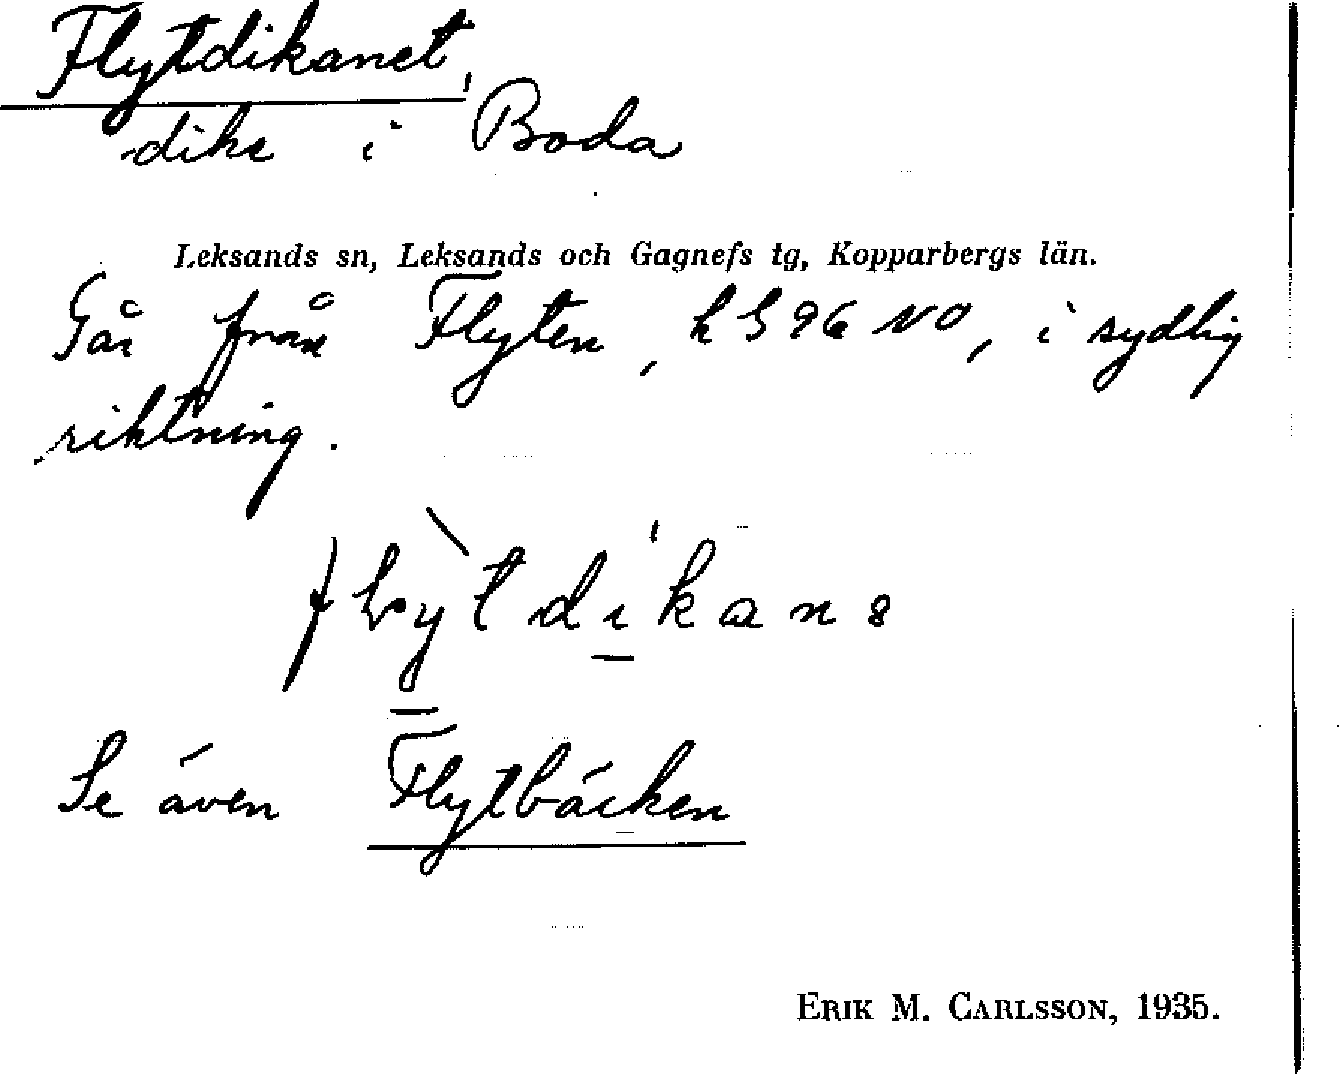 Flytdikanet,
dike i Boda
Leksands sn, Leksands och Gagnefs tg, Kopparbergs län.
Går från Flyten, NO, i sydlig
riktning.
Se även Flytbäcken
ERIK M. CARLSSON, 1935.